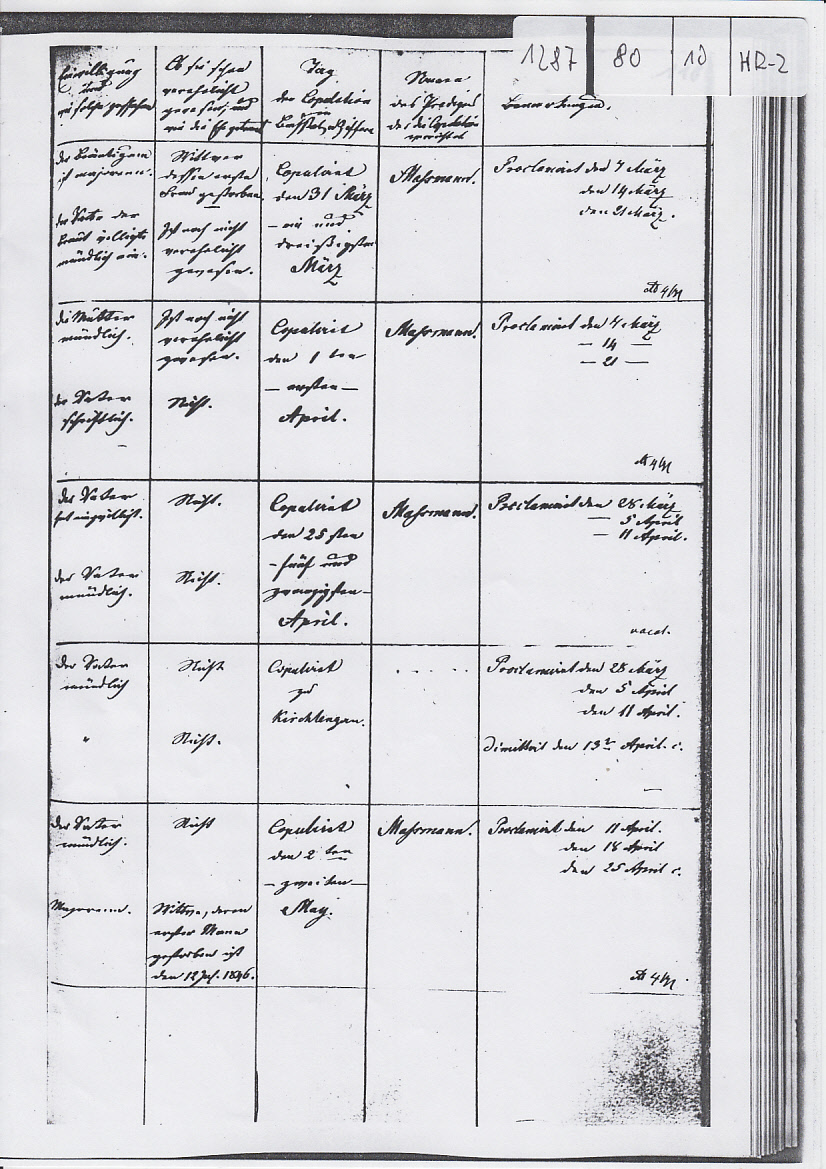 1287 80 10 HR-2
Einwilligung
und
wie solche geschehen
Ob sie schon
verehelicht
gewesen, und
wie die Ehe getrennt
Tag
der Copulation
in
Buchstaben & Ziffern
Namen
des Predigers
der die Copulation
verrichtet
Bemerkungen.
der Bräutigam
ist majorenn.
der Vater der
Braut willigte
mündlich ein.
Wittwer
dessen erste
Frau gestorben.
Ist noch nicht
verehelicht
gewesen.
Copulirt
den 31 März
– ein und
dreißigsten
März
Massmann.
Proclamirt den 7 März
den 14 März
den 21 März.
die Mutter
mündlich.
der Vater
schriftlich.
Ist noch nicht
verehelicht
gewesen.
Nicht.
Copulirt
den 1 ten
– ersten –
April.
Massmann.
Proclamirt den 7 März
– 14 –
– 21 –
der Vater
hat eingewilligt.
der Vater
mündlich.
Nicht.
Nicht.
Copulirt
den 25 sten
– fünf und
zwanzigsten –
April.
Massmann.
Proclamirt den 28 März
– 5 April
– 11 April.
vacat.
Der Vater
mündlich
"
Nicht
Nicht.
Copulirt
zu
Kirchlengern.
. . . . .
Proclamirt den 28 März
den 5 April
den 11 April.
Dimittirt den 13t April. c.
Der Vater
mündlich.
Majorenn.
Nicht
Wittwe, deren
erster Mann
gestorben ist
den 12 Jul. 1846.
Copulirt
den 2 ten
– zweiten –
May.
Massmann.
Proclamirt den 11 April.
den 18 April
den 25 April c.